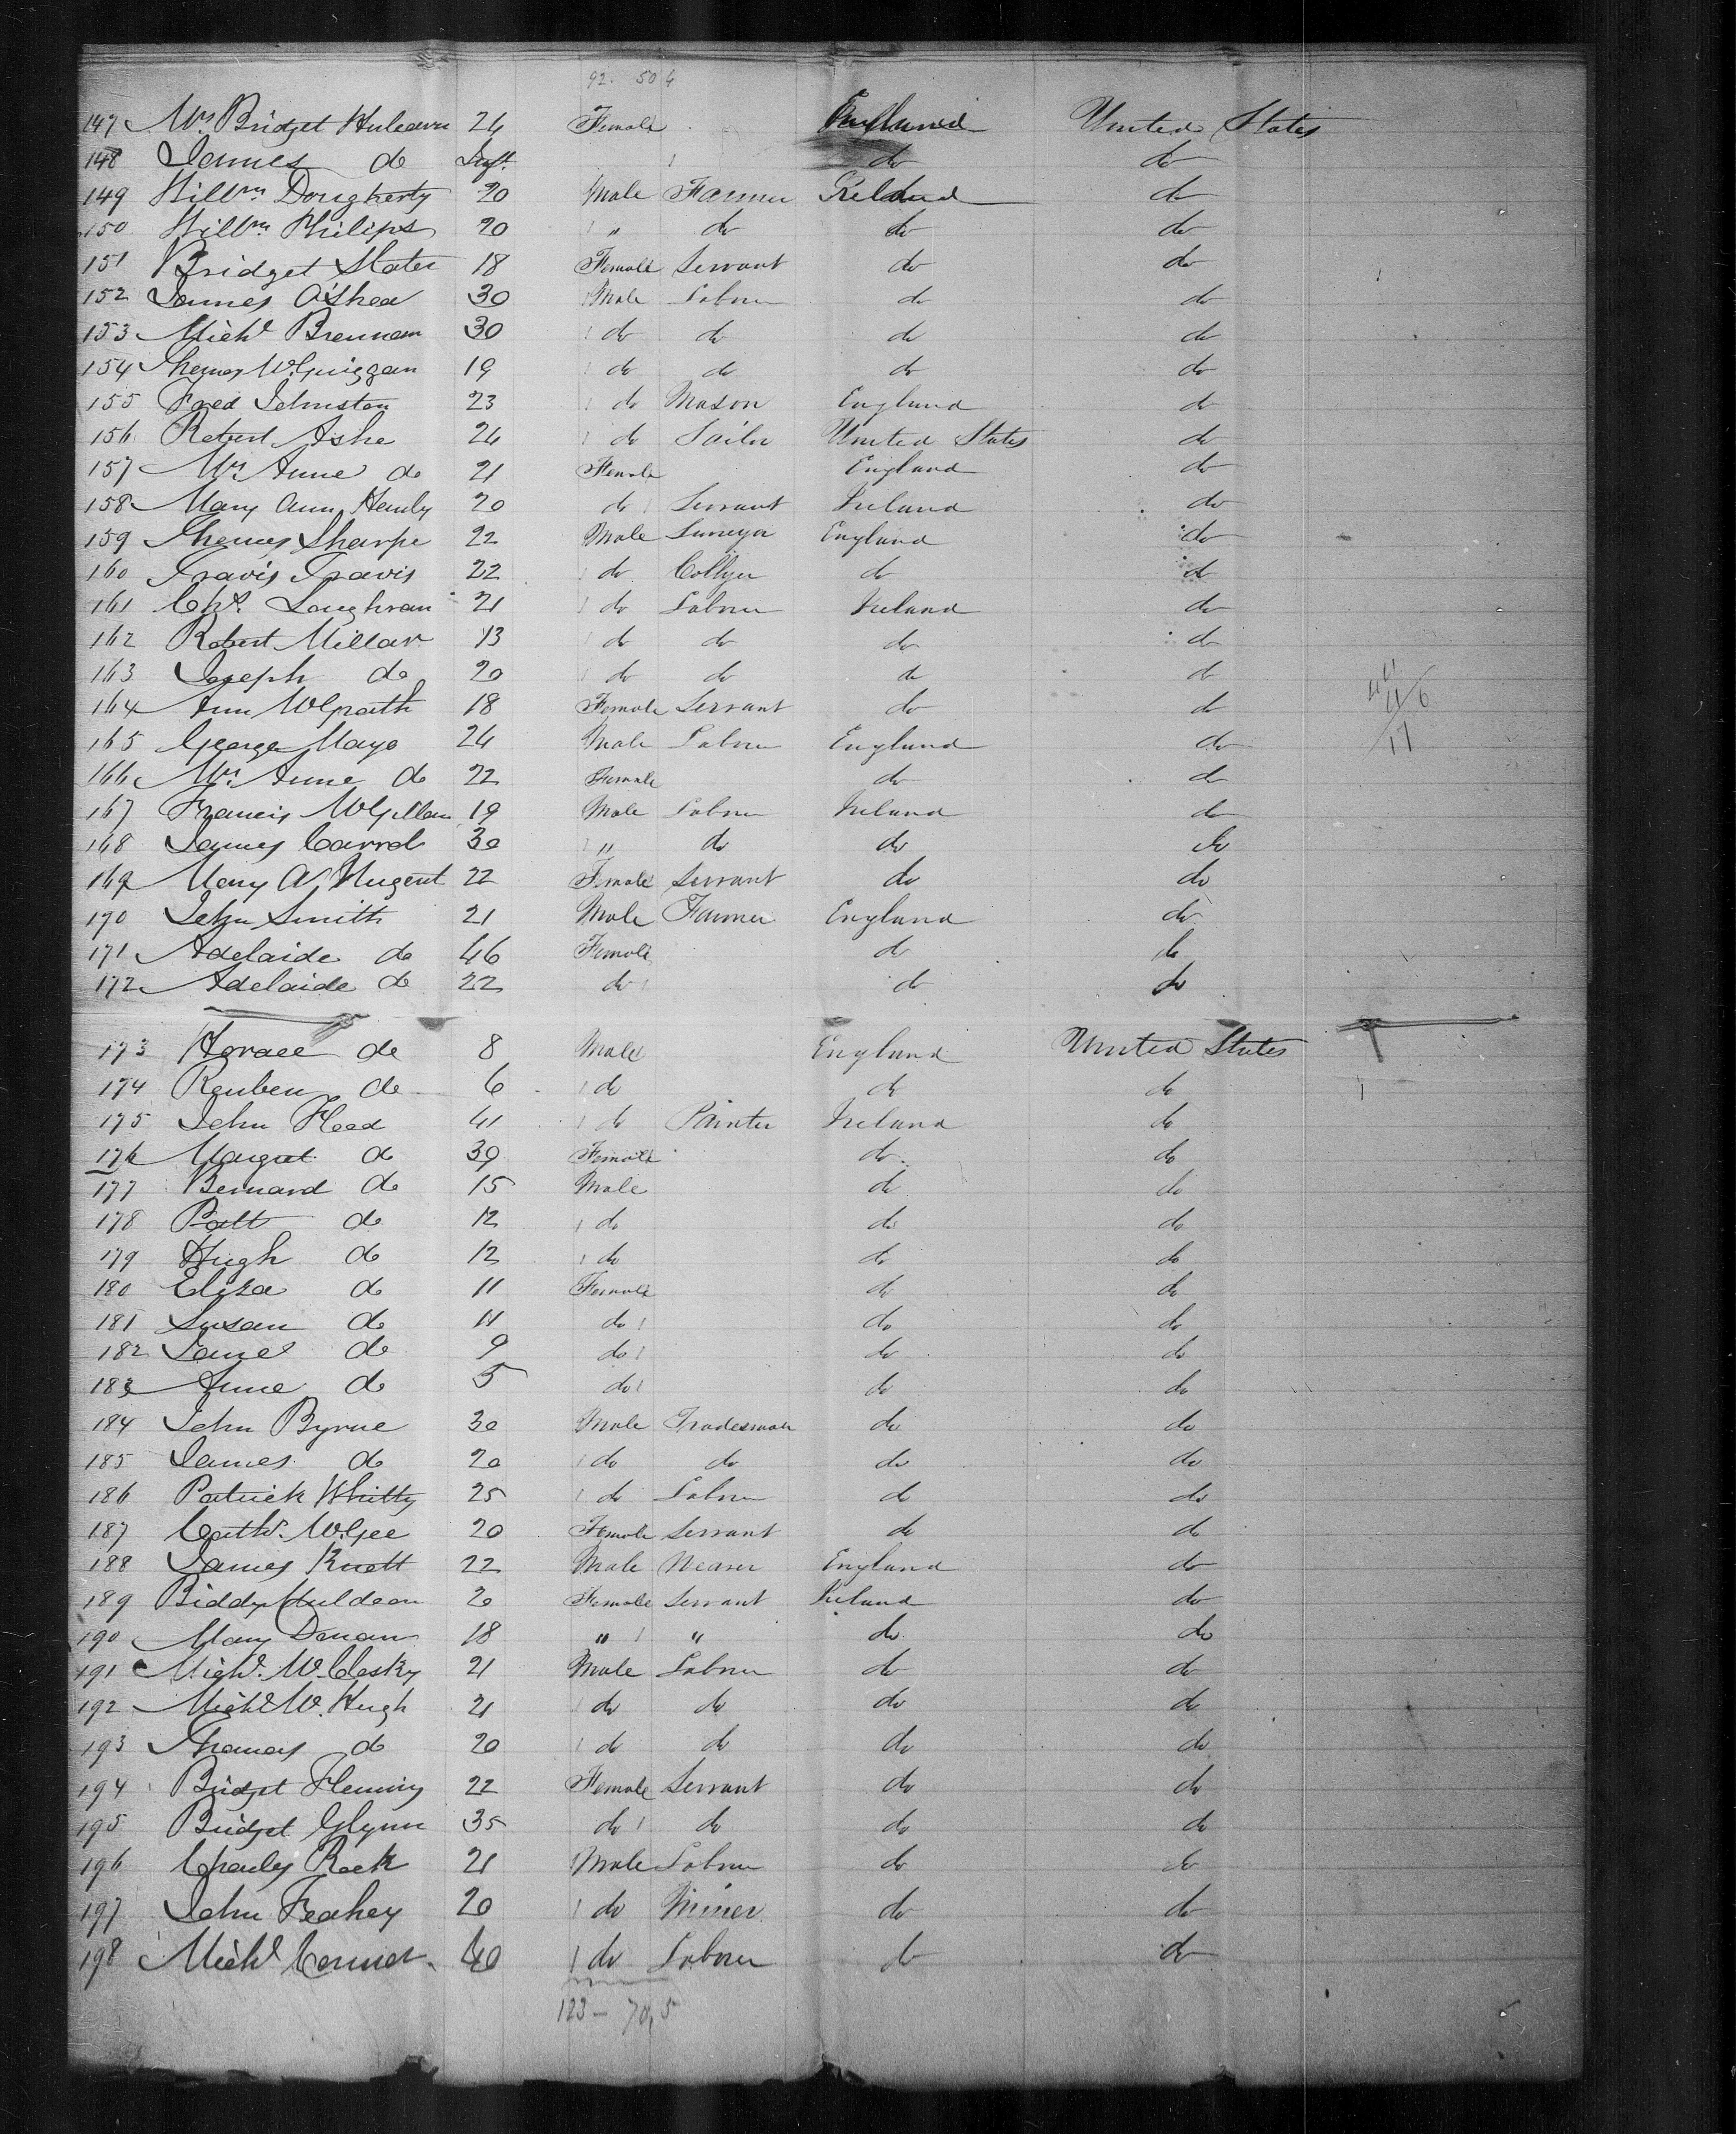 92. 50 4
147 Mrs Bridget 24 Female England United States
148 James do Inft. do do
149 Willm Dougherty 20 Male Farmer Ireland do
150 Willm Philips 20 " do do do
151 Bridget Slater 18 Female Servant do do
152 James O'Shea 30 Male Labour do do
153 Michl Brennan 30 do do do do
154 Thomas McGuiggan 19 do do do do
155 Fred Johnston 23 do Mason England do
156 Robert Ashe 24 do Sailor United States do
157 Mrs Anne do 21 Female England do
158 Mary Ann Hanly 20 do Servant Ireland do
159 Thomas Sharpe 22 Male England do
160 Travis Travis 22 do Collyer do do
161 Chs. Loughran 21 do Labour Ireland do
162 Robert Millar 13 do do do do
163 Joseph do 20 do do do do
164 Ann McGrath 18 Female Servant do do
165 George Mayo 24 Male Labour England do
166 Mrs. Anne do 22 Female do do
167 Francis 19 Male Labour Ireland do
168 James Carrol 30 " do do do
169 Mary A Nugent 22 Female Servant do do
170 John Smith 21 Male Farmer England do
171 Adelaide do 46 Female do do
172 Adelaide do 22 do do do
173 Horace do 8 Male England United States
174 Reuben do 6 do do do
175 John Heed 41 do Painter Ireland do
176 Margret do 39 Female do do
177 Bernard do 15 Male do do
178 Patt do 12 do do do
179 Hugh do 12 do do do
180 Eliza do 11 Female do do
181 Susan do 11 do do do
182 do 9 do do do
183 Anne do 5 do do do
184 John Byrne 30 Male Tradesman do do
185 James do 20 do do do do
186 Patrick Whitty 25 do Labour do do
187 Cathe. McGee 20 Female Servant do do
188 James Knott 22 Male Weaver England do
189 Biddy Muldoon 20 Female Servant Ireland do
190 Mary 18 " " do do
191 Michl. McClosky 21 Male Labour do do
192 Michl Mc.Hugh 21 do do do do
193 Thomas do 20 do do do do
194 Bridget Fleming 22 Female Servant do do
195 Bridget Glynn 35 do do do do
196 Charles Rock 21 Male Labour do do
197 John Feahey 20 do Miner do do
198 Michl Conner 40 do Labour do do
123 - 70,5